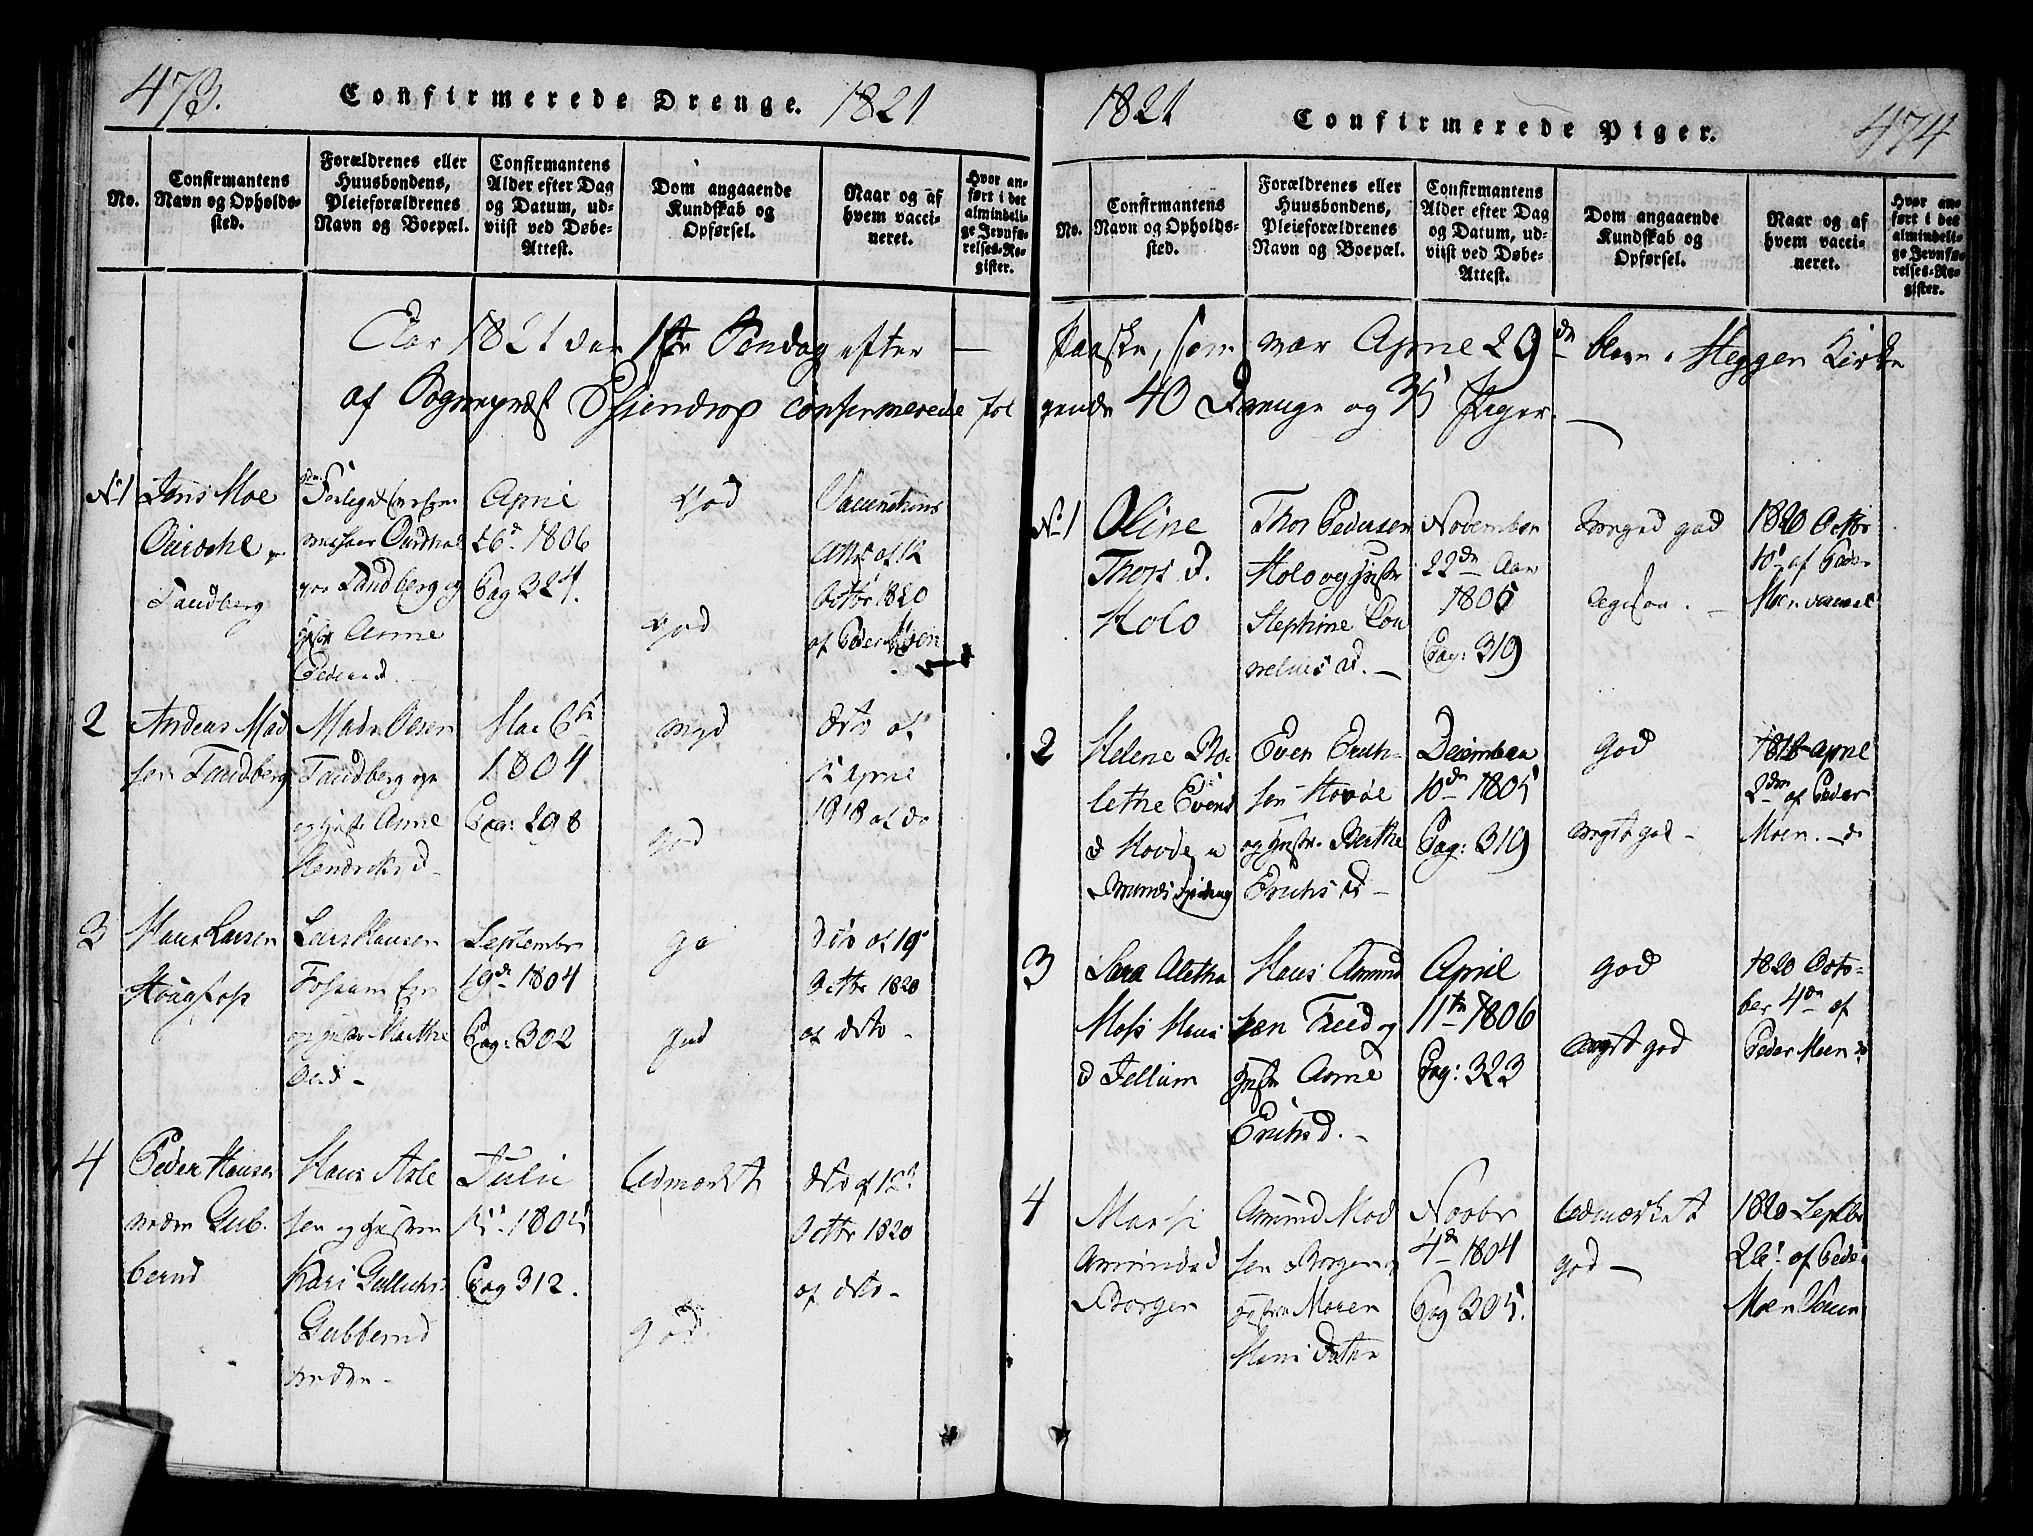 473.
Confirmerede Drenge. 1821
No.
Confirmantens
Navn og Opholds-
sted.
Forældrenes eller
Huusbondens,
Pleieforældrenes
Navn og Boepæl.
Confirmantens
Alder efter Dag
og Datum, ud-
viist ved Døbe-
Attest.
Dom angaaende
Kundskab og
Opførsel.
Naar og af
hvem vacci-
neret.
Hvor an-
ført i det
almindeli-
ge Jevnfø-
relses-Re-
gister.
Aar 1821 den 1ste Søndag efter
af Sognepræst confirmerede føl
No 1
Jens Moe
Tandberg
Tandberg og
Anne
April
26d 1806
Pag 324.
God
God
Octbr 1820
af Peder Moen
2
Andreas Mad
sen Tandberg
Mads Olsen
Tandberg
og Hustr Anne
Hendriks d
Mai 6te
1804
Pag: 298
god
dito af
12 April
1818 af do
3
Hans Larsen
Hougfoss
Lars Hansen
Fossum
og Hustr Marthe
Ols d
September
19d 1804
Pag: 302
go
god
dito af 19
Octbr 1820
af dito
4
Peder Hansen
nedre Gub
bernd
Hans Axle
sen og Hustru
Kari Gulliks
Gubbernd
nedre
Julii
15 1805
Pag 312.
Udmærket
god.
dito af 12
Octbr 1820
af dito
1821
Confirmerede Piger.
474
No.
Confirmantens
Navn og Opholds-
sted.
Forældrenes eller
Huusbondens,
Pleieforældrenes
Navn og Boepæl.
Confirmantens
Alder efter Dag
og Datum, ud-
viist ved Døbe-
Attest.
Dom angaaende
Kundskab og
Opførsel.
Naar og af
hvem vacci-
neret.
Hvor an-
ført i det
almindeli-
ge Jevnfø-
relses-Re-
gister.
Paaske, som var April 29de blev i Heggen Kirke
gende 40 Drenge og 35 Piger.
No 1
Oline
Thors d.
Holo
Thor Pedersen
Holo og Hustr
Stephine Cor
nelius d.
November
22de Aar
1805
Pag: 319
meget god
1820 Octbr
10 af Peder
Moen
2
Helene
lethe Evens
d Hovde
Even Erich-
sen Hovde
og Hustr. Berthe
Erichs d
December
10de 1805
Pag: 319
God
meget god
1818 April
2den af Peder
Moen. do
3
Sara Alethe
Moss Hans
d Jellum
Hans Amund
sen Treed og
Hustr Anne
Erichs d.
April
11te 1806
Pag: 323
God
meget god
1820 Octo-
ber 4de af
Peder Moen do
4
Amunds d
Borgen
Amund Mad
sen Borgen
Hustru Maren
Hans Datter
Novbr
4de 1804
Pag 305.
Udmærket
god
1820 Septbr
26 af Peder
Moen